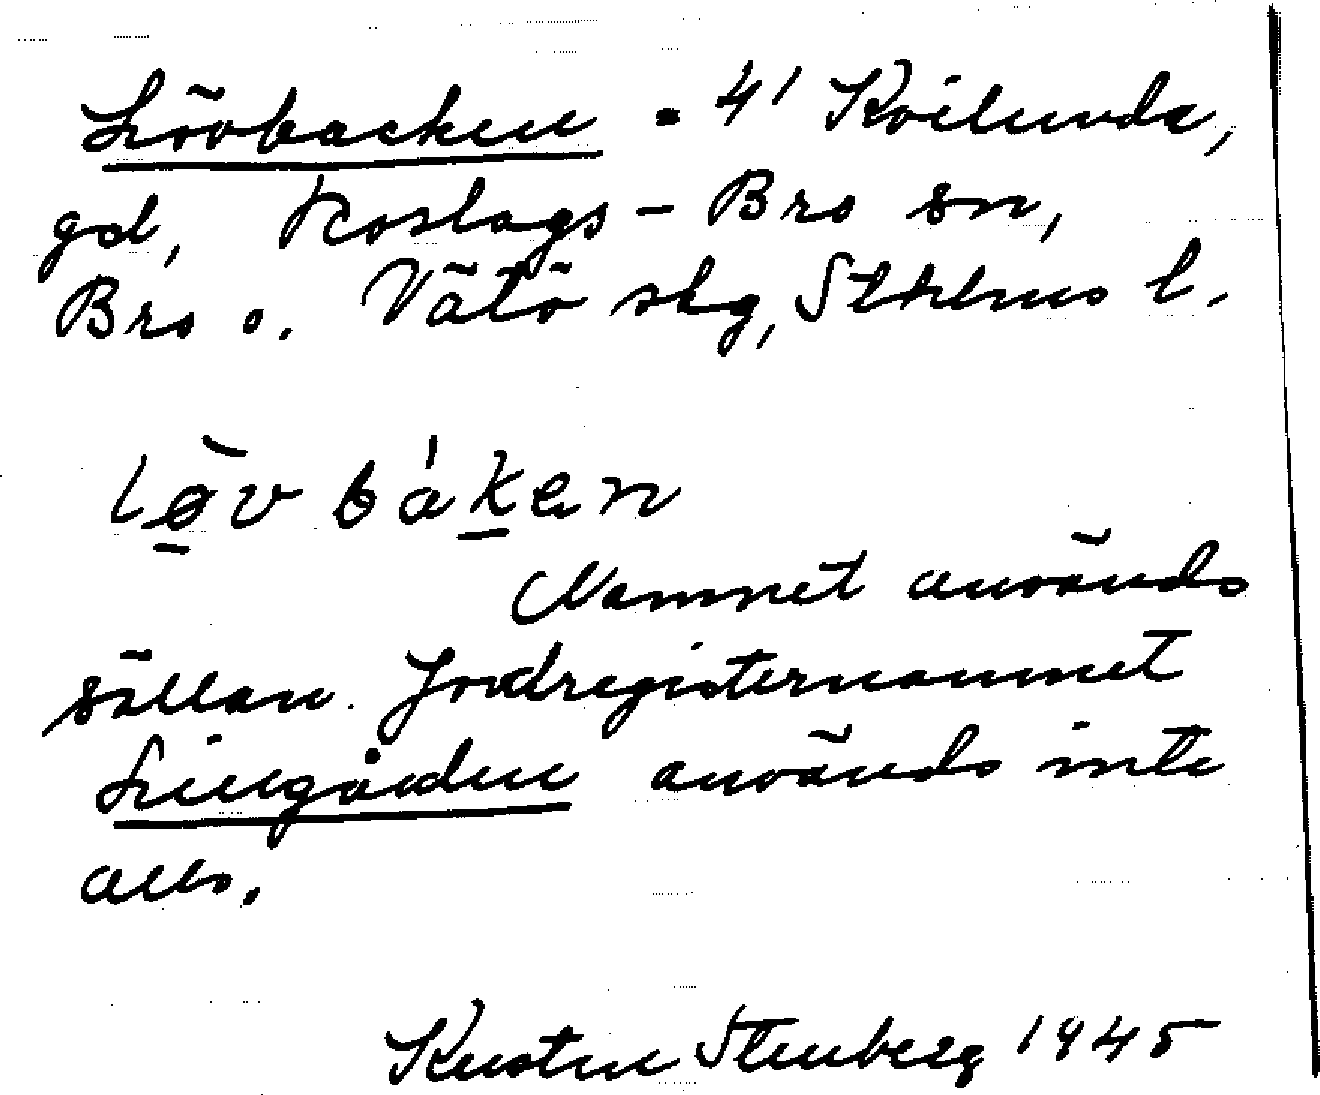 Lövbacken = 4¹ Kvilunda,
gd, Roslags-Bro sn,
Bro o. Vätö skg, Sthlms l.
lø̀v báken
Namnet används
sällan. Jordregisternamnet
Lillgården används inte
alls.
Kerstin Stenberg 1945